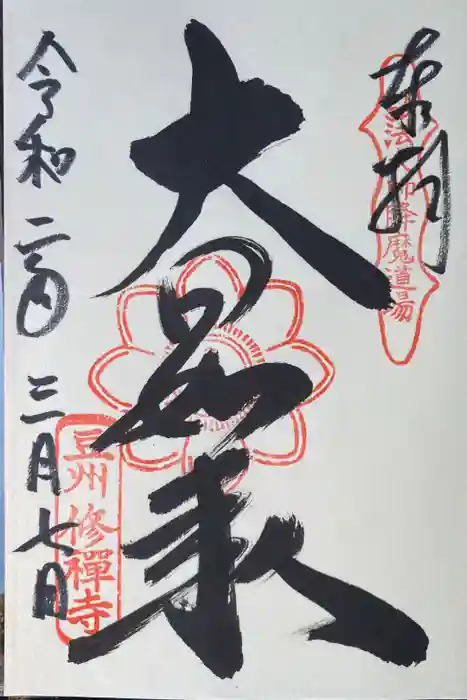 奉拝
弘法大師降魔道場
大日如来
令和二年三月七日
豆州修禅寺